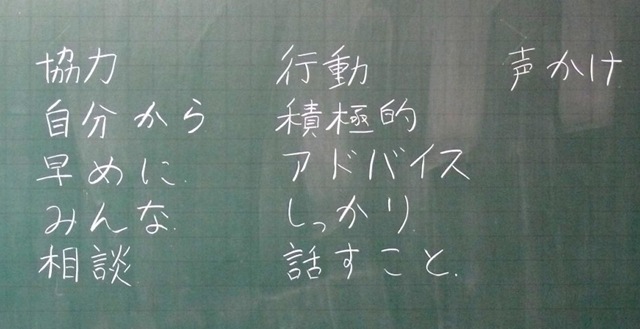 協力 行動 声かけ
自分から 積極的
早めに. アドバイス
みんな. しっかり.
相談 話すこと.